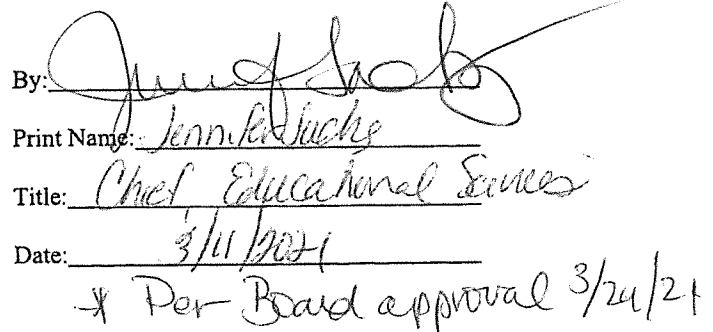 By: Jennifer Sachs
Print Name: Jennifer Sachs
Title: Chief Educational Services
Date: 3/11/2021
* Per Board approval 3/24/21